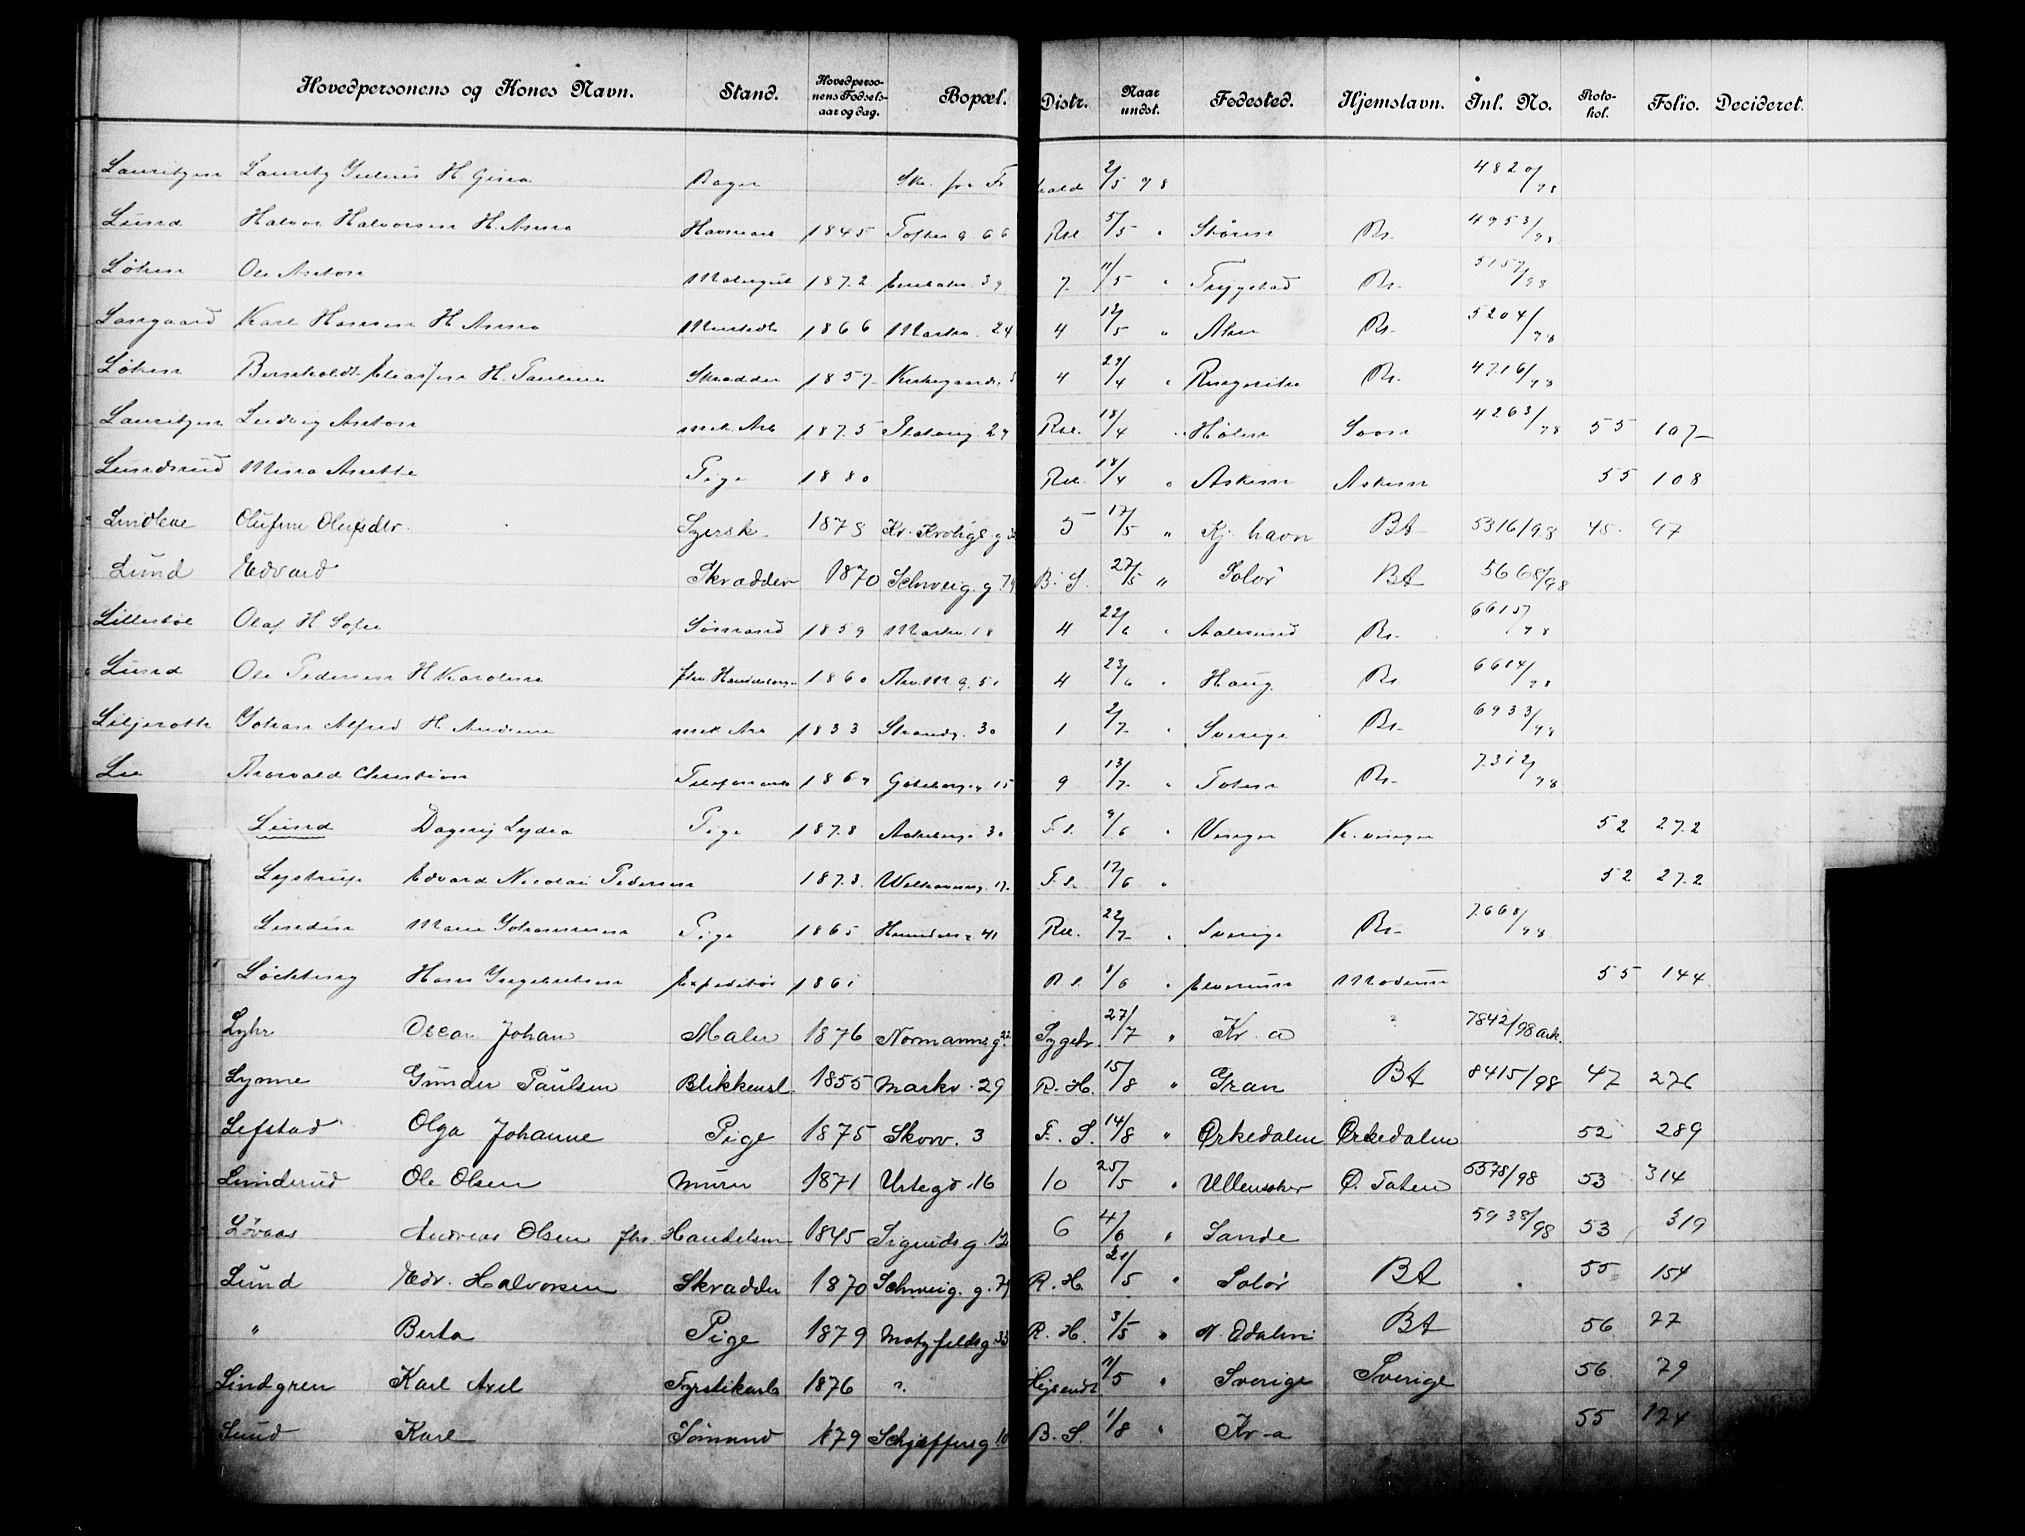 Hovedpersonens og Kones Navn. Stand. Hovedpersonens Fødselsaar og dag. Bopæl. Distr. Naar undst. Fødested. Hjemstavn. Inl. No. Protokol. Folio. Decideret.
Lauritzen Lauritz Julius H Gina Bager Fr. hald 2/5 98 4820/98
Lund Halvor Halvorsen H. Anna 1845 Tofteg. 66 5/5 " Støren Bt. 4953/98
Løken Ole Anton Malersv 1872 39 7 11/5 " Trygstad Bt. 5157/98
Langaard Karl Hansen H Anna 1866 Markv. 24 4 12/5 " Aker Bt. 5204/98
Løken Bernholdt Eliassen H. Pauline Skrædder 1857 Kirkegaards. 4 29/4 " Ringerike Bt. 4716/98
Lauritzen Ludvig Anton mek. Arb 1875 27 18/4 " Hølen Soon 4263/98 55 107
Lundsrud Mina Anette Pige 1880 18/4 " Askim Askim 55 108
Lindboe Olufine Olufsdtr. Sypsk. 1878 Kr. Krohgs g 5 17/5 " Kj. havn Bt 5316/98 45 97
Lund Edvard Skrædder 1870 Schweig. g. 74 B. S. 27/5 " Solør Bt 5668/98
Lillestøl Olaf H Sofie Sømand 1859 Markv. 18 4 22/6 " Aalesund Bt. 6615/98
Lund Ole Pedersen H Karoline fhv. 1860 Thv. M. g. 51 4 23/6 " Haug Bt. 6614/98
Liljeroth Johan Alfred H. mek Arb 1833 Strandg. 30 1 2/7 " Sverige Bt. 6933/98
Lie Thorvald Christian Telefonarb 1869 Göteborg. 15 9 13/7 " Toten Bt. 7312/98
Lund Dagny Lydia Pige 1878 Akersberg 30 F. S. 9/6 " Vinger Kr. vinger 52 272
Lystrup Edvard Nicolai Pedersen 1873 Welhavensg. 17 F. S. 17/6 " 52 272
Linden Marie Johannesen Pige 1865 41 22/7 " Sverige Bt. 7668/98
Løchting Hans Ingebretsen Expeditør 1861 B. S. 1/6 " Elverum Modum 55 144
Lyhr Oscar Johan Maler 1876 Normannsg. 22 Sygeh. 27/7 " Kr. a ? 7842/98 ark.
Lynne Gunder Paulsen Blikkensl. 1855 Markv. 29 R. H. 15/8 " Gran Bt 8415/98 47 276
Lefstad Olga Johanne Pige 1875 Skovv. 3 F. S. 14/8 " Ørkedalen Ørkedalen 52 289
Linderud Ole Olsen Murer 1871 Urtegd. 16 10 25/5 " Ullensaker Ø. Toten 5578/98 53 314
Løvaas Andreas Olsen fhv. Handelsm 1845 Sigurdsg. 12 6 4/6 " Sande 5938/98 53 319
Lund Edv. Halvorsen Skrædder 1870 Schweig. g. 74 R. H. 21/5 " Solør Bt 55 154
" Berta Pige 1879 Motzfeldsg. 33 R. H. 3/5 " N. Odalen Bt 56 77
Lindgren Karl Axel Fyrstikarb 1876 ? 11/5 " Sverige Sverige 56 79
Lund Karl Sømand 1879 Schjøffersg. 10 B. S. 1/8 " Kr-a 55 174